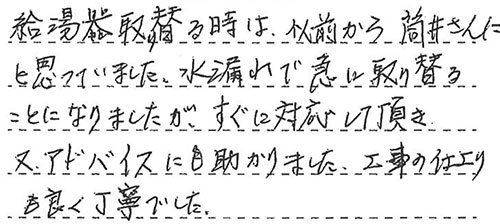 給湯器取替る時は、以前から筒井さんに
と思っていました。水漏れで急に取り替る
ことになりましたが、すぐに対応して頂き
又、アドバイスにも助かりました。工事の仕上り
も良く丁寧でした。